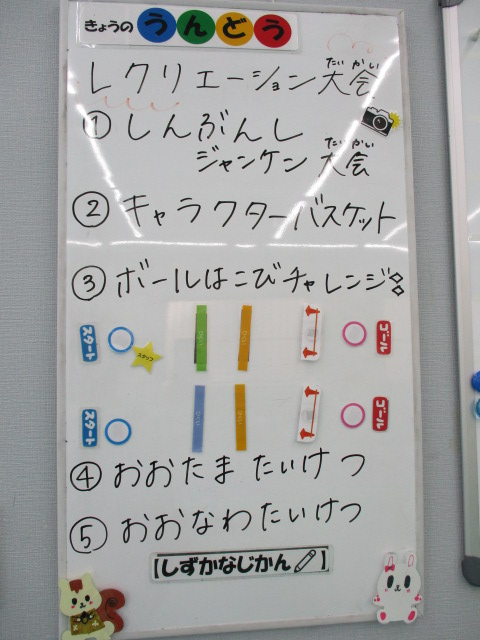 きょうの うんどう
レクリエーション大会
たいかい
① しんぶんし
ジャンケン 大会
たいかい
② キャラクターバスケット
③ ボールはこびチャレンジ
スタート
スタッフ
ゴール
スタート
ゴール
④ おおたま たいけつ
⑤ おおなわたいけつ
【しずかなじかん】